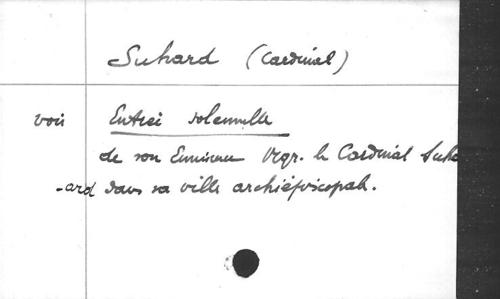 Suhard (Cardinal)
voir Entrée solennelle
de son Eminence Mgr. le Cardinal Suha
-ard dans sa ville archiépiscopale.